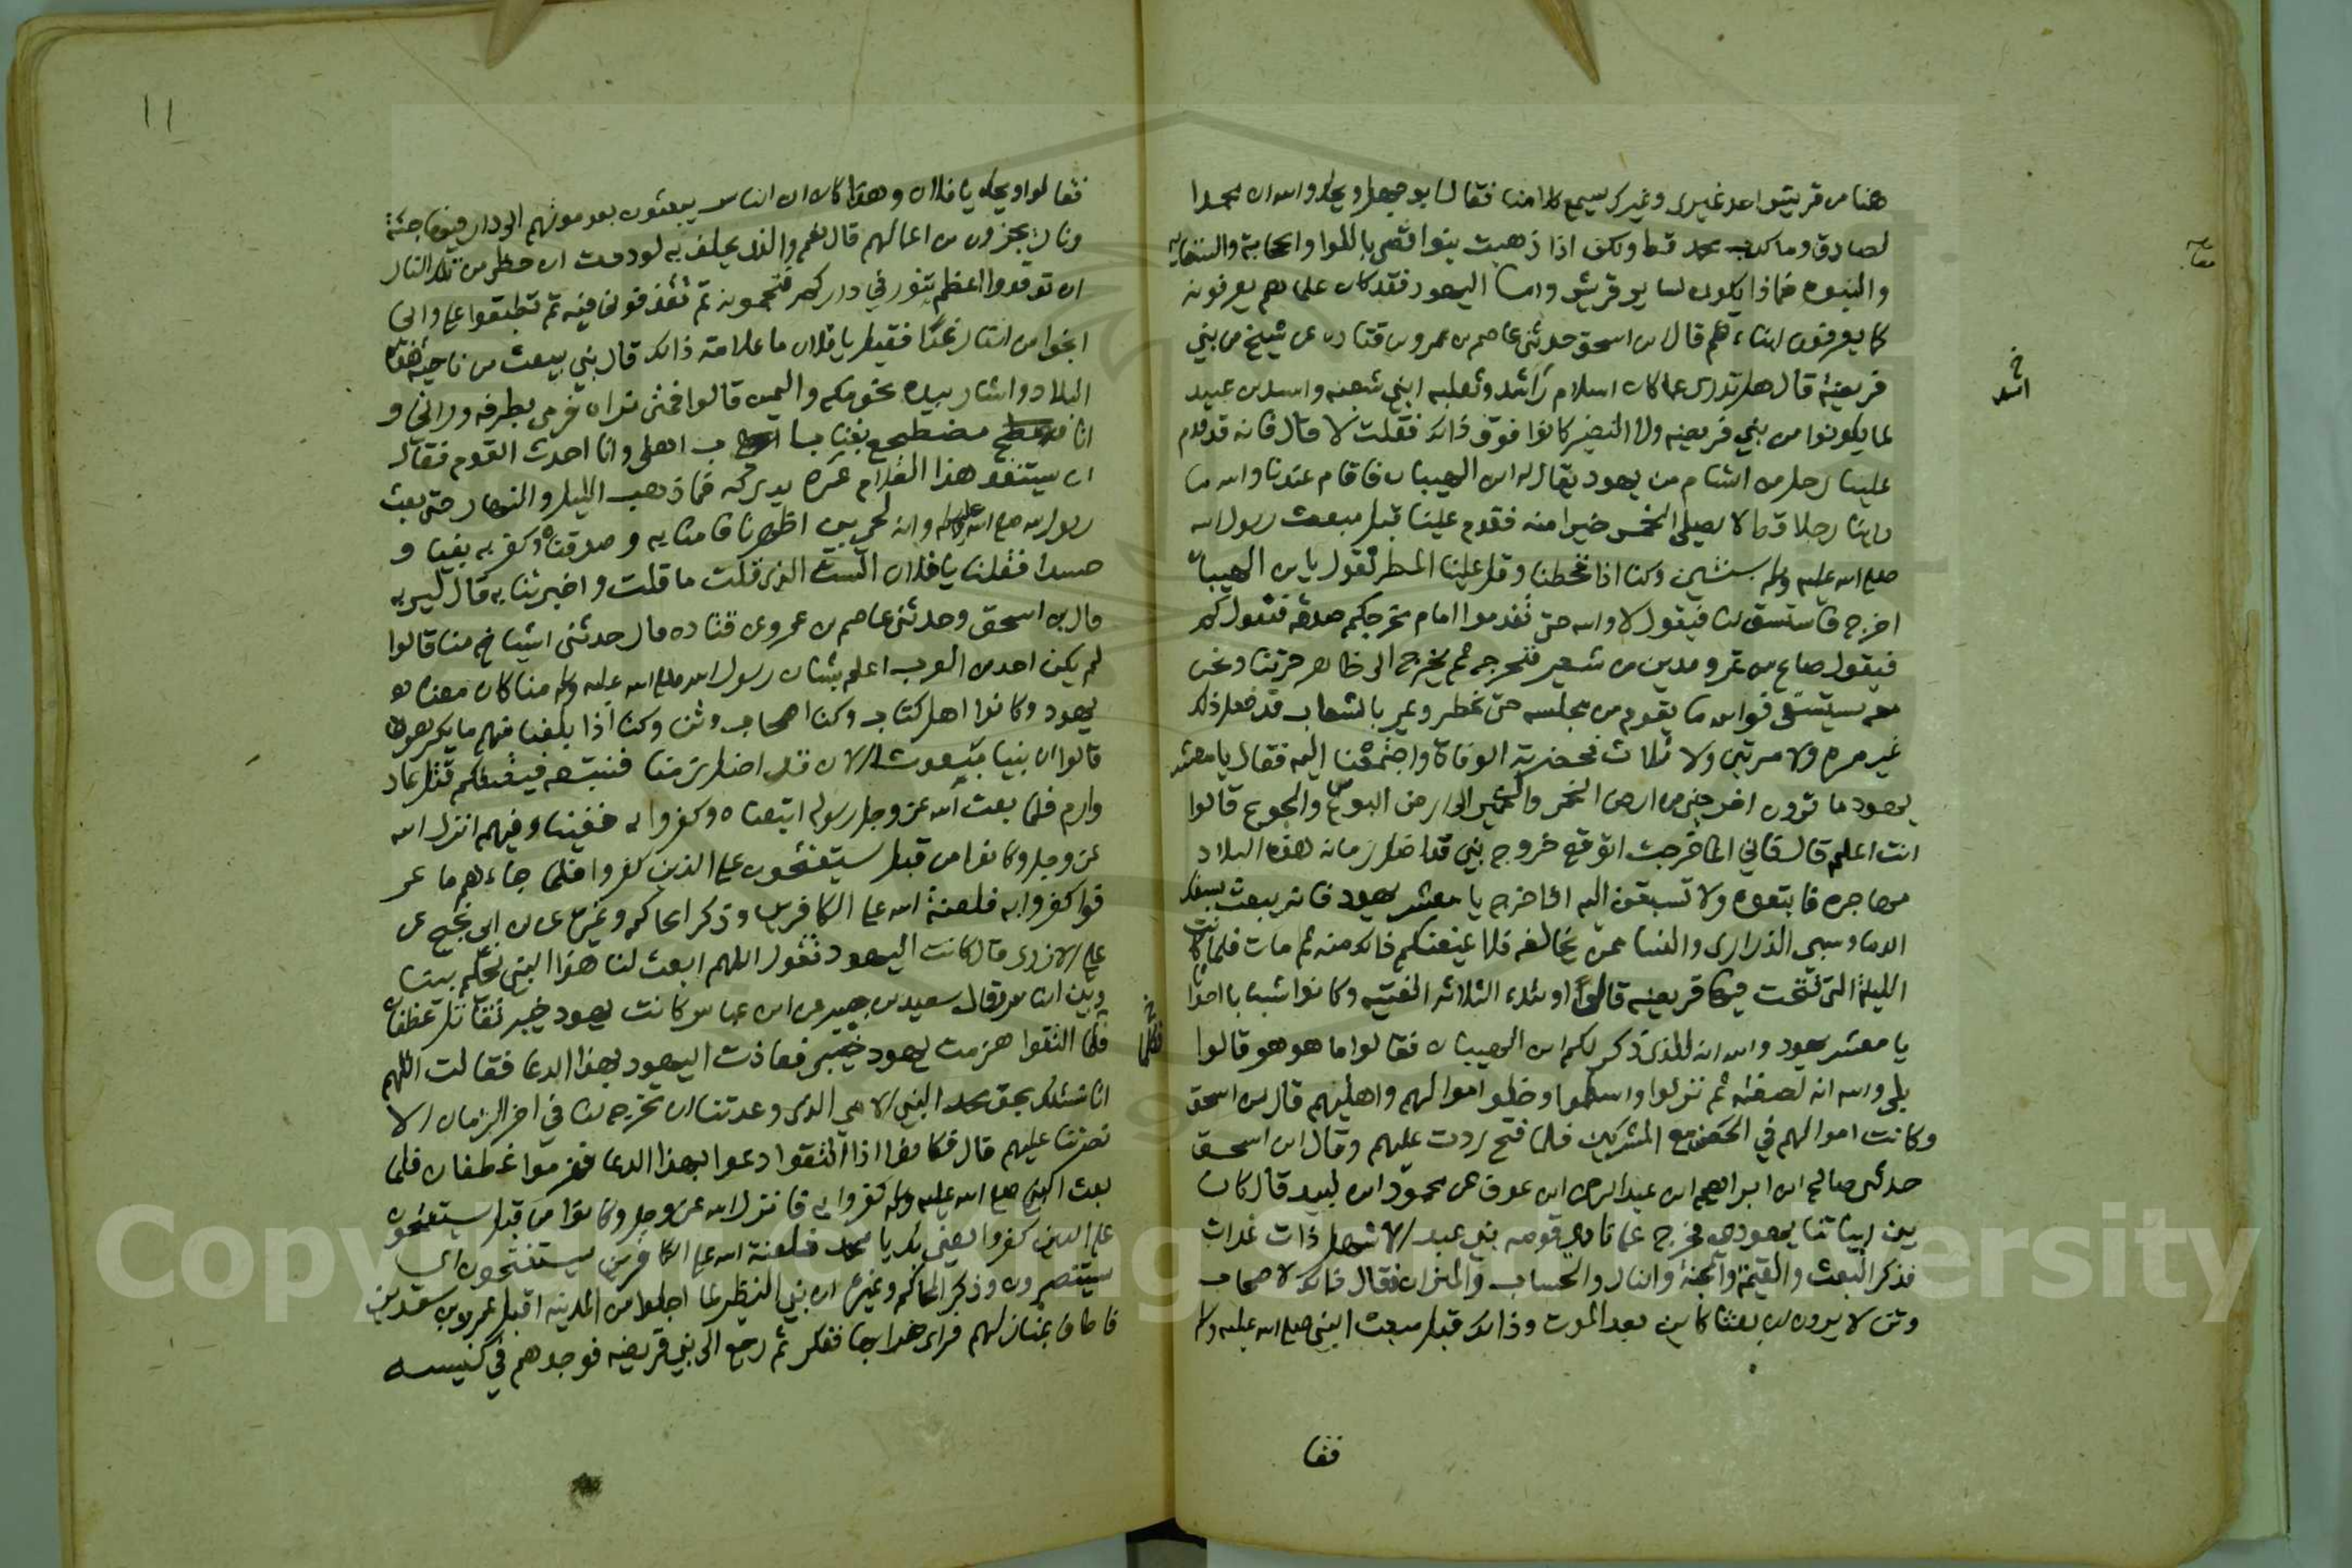 هنا من قريش احد غيري وغيرك يسمع كلامنا فقال ابو جهل ويحك والله ان محمدا
لصادق وما كذب محمد قط ولكن اذا ذهبت بنوا قصي باللوا والحجابة والسقايه
والنبوه فماذا يكون لساير قريش واما اليهود فقد كان علماهم يعرفونه
كما يعرفون ابناءهم قال ابن اسحق حدثني عاصم بن عمرو بن قتاده عن شيخ من بني
قريضة قال هل تدرى عما كان اسلام راشد وثعلبه ابني شعنه واسد بن عبيد
لما يكونوا من بني قريضه ولا النضير كانوا فوق ذالك فقلت لا قال فانه قدم
علينا رجل من الشام من يهود يقال له ابن الهيبان فاقام عندنا والله ما
راينا رجلا قط لا يصلى الخمس خيرا منه فقدم علينا قبل مبعث رسول الله
صلى الله عليه وسلم بسنتين وكنا اذا قحطنا وقل علينا المطر نقول يا بن الهيبان
اخرج فاستسق لنا فيقول لا والله حتى تقدموا امام مخرجكم صدقه فنقول كم
فيقول صاع من تمر ومدين من شعير فنخرجه ثم يخرج الى ظاهر حرتنا ونحن
معه يستسقى فوالله ما يقوم من مجلسه حتى تمطر وتمر بالشعاب قد فعل ذلك
غير مره ولا مرتين ولا ثلاث فحضرته الوفاة واجتمعنا اليه فقال يا معشر
يهود ما ترون اخرجني من ارض الخمر والخمير الى ارض البوس والجوع قالوا
انت اعلم قال فاني انما خرجت اتوقع خروج نبي قد اظل زمانه هذه البلاد
مهاجره فاتبعوه ولا تسبقن اليه اذا خرج يا معشر يهود فانه يبعث بسفك
الدما وسبى الذرارى والنسا ممن يخالفه فلا يمنعنكم ذالك منه ثم مات فلما كانت
الليلة التى فتحت فيها قريضه قالوا اولئك الثلاثه الفتيه وكانوا شبابا احداثا
يا معشر يهود والله انه للذى ذكر لكم ابن الهيبان فقالوا ما هو هو قالوا
بلى والله انه لصفته ثم نزلوا واسلموا وخلوا اموالهم واهليهم قال بن اسحق
وكانت اموالهم في الحصن مع المشركين فلما فتح ردت عليهم وقال ابن اسحق
حدثنى صالح ابن ابراهيم ابن عبد الرحمن ابن عوف عن محمود ابن لبيد قال كان
بين ابياتنا يهودي فخرج على نادي قومه بني عبد الاشهل ذات غداة
فذكر البعث والقيمة والجنة والنار والحساب والميزان فقال ذالك لاصحاب
وثن لا يرون ان بعثا كاين بعد الموت وذالك قبل مبعث النبي صلى الله عليه وسلم
فقا
خ
اسد
١١
فقالوا ويحك يا فلان وهذا كاين ان الناس يبعثون بعد موتهم الى دار فيها جنة
ونار يجزون من اعمالهم قال نعم والذى يحلف به لوددت ان حظى من تلك النار
ان توقدوا اعظم تنور في داركم فتحمونه ثم تقذفوني فيه ثم تطبقوا علي واني
انجوا من النار غدا فقيل يا فلان ما علامة ذالك قال نبي يبعث من ناحية هذه
البلاد واشار بيده نحو مكه واليمن قالوا فمتى نراه فرمى بطرفه وراني و
انا مضطجع بفنا باب اهلى وانا احدث القوم فقال
ان يستنفد هذا الغلام عمره يدركه فما ذهب الليل والنهار حتى بعث
رسول الله صلى الله عليه وسلم وانه لحي بين اظهرنا فامنا به وصدقناه وكفر به بغيا و
حسدا فقلنا يا فلان الست الذى قلت ما قلت واخبرتنا به قال ليس به
قال بن اسحق وحدثنى عاصم بن عمرو بن قتاده قال حدثنى اشياخ منا قالوا
لم يكن احد من العرب اعلم بشان رسول الله صلى الله عليه وسلم منا كان معنا
يهود وكانوا اهل كتاب وكنا اصحاب وثن وكنا اذا بلغنا منهم ما يكرهون
قالوا ان نبيا مبعوث الان قد اظل زمنا فنتبعه فيقتلكم قتل عاد
وارم فلما بعث الله عز وجل رسوله اتبعناه وكفروا به ففينا وفيهم انزل الله
عز وجل وكانوا من قبل يستفتحون على الذين كفروا فلما جاءهم ما عر
فوا كفروا به فلعنة الله على الكافرين وذكر الحاكم وغيره عن ابن ابى نجيح عن
على الازدى قال كانت اليهود تقول اللهم ابعث لنا هذا النبي يحكم بيننا
وبين الناس وقال سعيد بن جبير عن ابن عباس كانت يهود خيبر تقاتل غطفان
فلما التقوا هزمت يهود خيبر فعاذت اليهود بهذا الدعا فقالت اللهم
انا نسئلك بحق محمد النبي الامي الذى وعدتنا ان تخرجه لنا في اخر الزمان الا
نصرتنا عليهم قال فكانوا اذا التقوا دعوا بهذا الدعا فهزموا غطفان فلما
بعث النبي صلى الله عليه وسلم كفروا به فانزل الله عز وجل وكانوا من قبل يستفتحون
على الذين كفروا يعني بك يا محمد فلعنة الله على الكافرين يستفتحون اى
يستنصرون وذكر الحاكم وغيره ان بني النظير لما اجلوا من المدينه اقبل عمرو بن سعد بن
فاطاف بمنازلهم فراى خرابها ففكر ثم رجع الى بني قريضه فوجدهم في كنيسه
خ
فكلما
Copyright © King Saud University